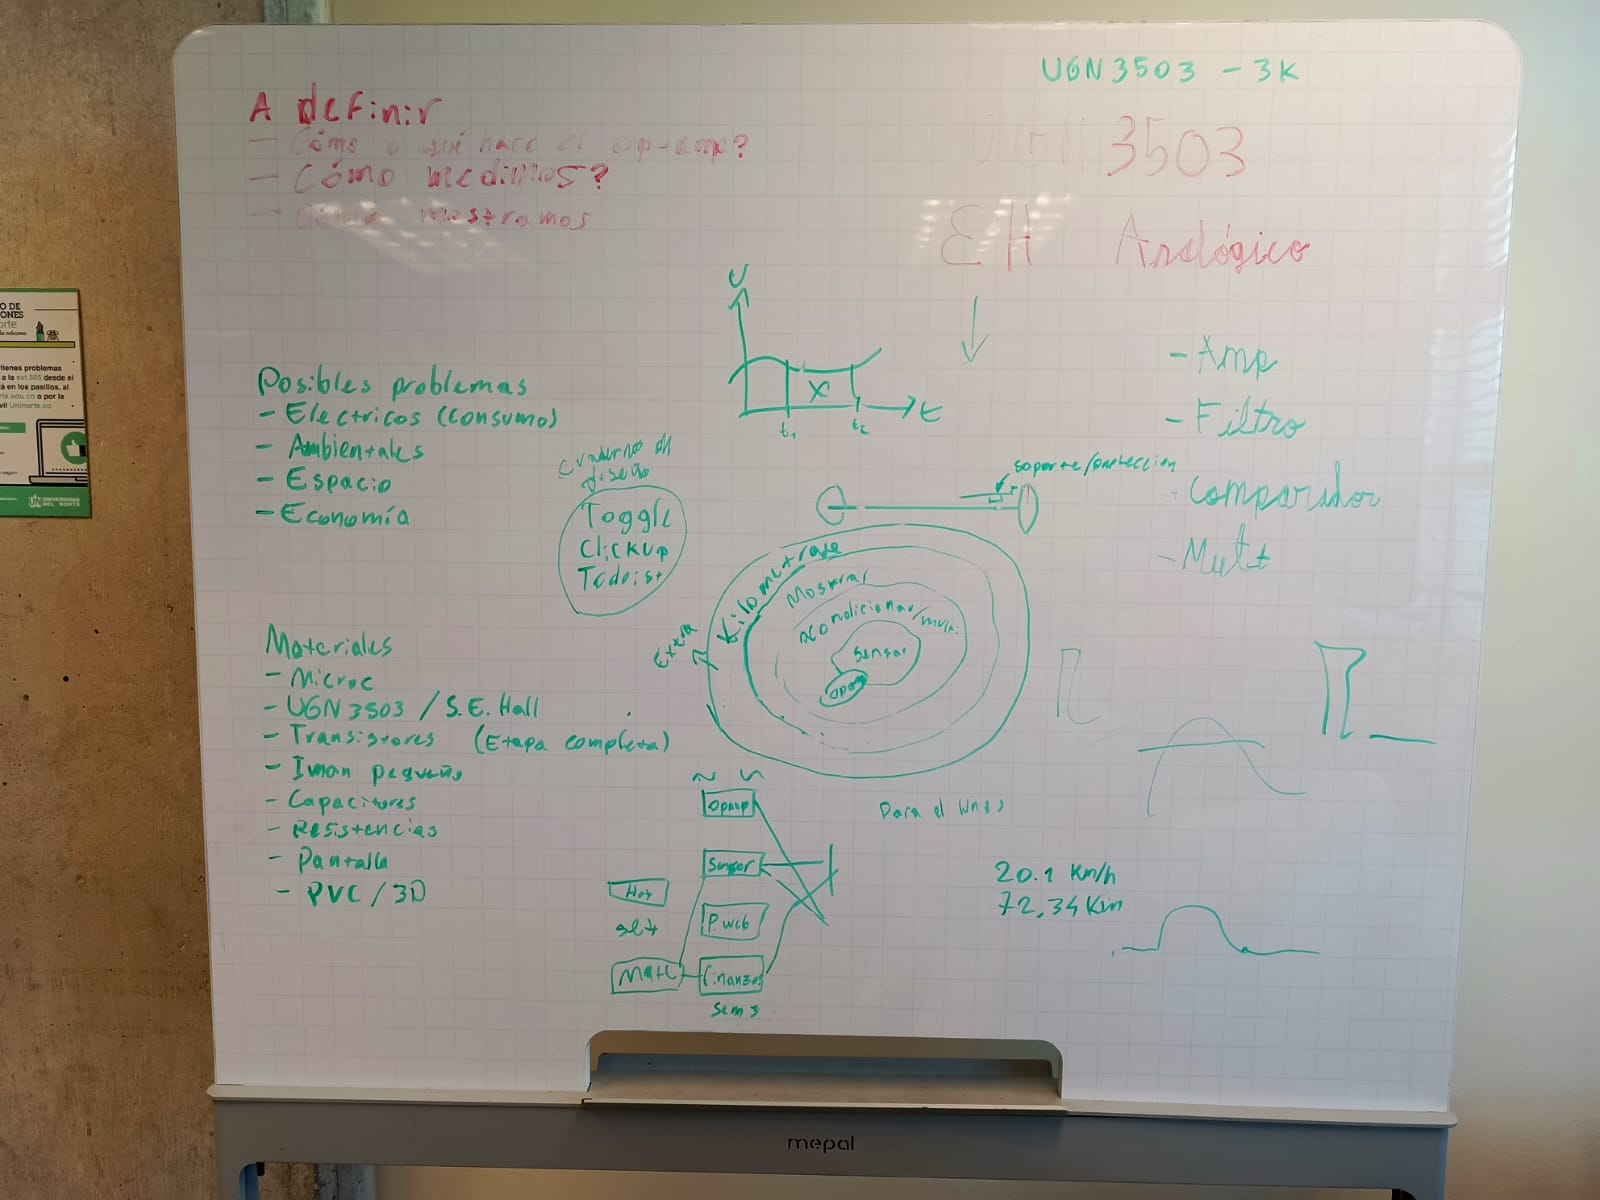 UGN3503 - 3K
A definir
- Cómo o qué hace el op-amp?
- Cómo medimos?
- Cómo mostramos
3503
EH Analógico
- Amp
- Filtro
- Comparador
- Mult
U
X
t
t₁
Posibles problemas
- Electricos (consumo)
- Ambientales
- Espacio
- Economía
cuaderno de
diseño
Toggle
Clickup
Todoist
soporte/proteccion
Kilometraje
Mostrar
Acondicionar/multi
Sensar
opamp
Extra
Materiales
- Microc
- UGN3503 / S.E. Hall
- Transistores (Etapa completa)
- Iman pequeño
- Capacitores
- Resistencias
- Pantalla
- PVC / 3D
Opamp
Sensor
P. web
Finanzas
Sem 3
Hoy
Mate
Para el lunes
20.1 Km/h
72,34 Km
O DE
ONES
orte
tienes problemas
a la ext.505 desde el
á en los pasillos, al
rte.edu.co o por la
vil Uninorte.co
UN UNIVERSIDAD
DEL NORTE
mepal